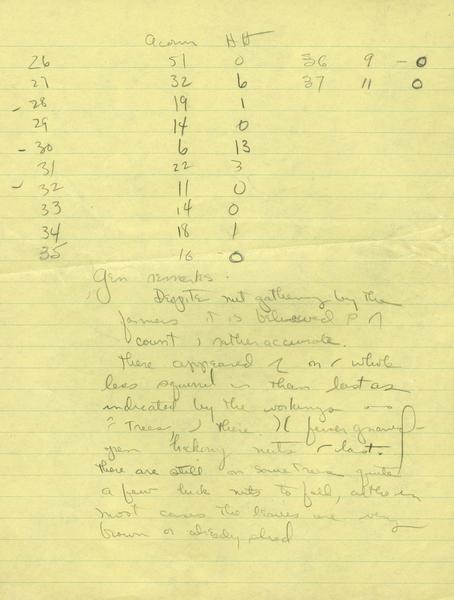 Acorn HH
26 51 0 36 9 - 0
27 32 6 37 11 0
- 28 19 1
29 14 0
- 30 6 13
31 22 3
- 32 11 0
33 14 0
34 18 1
35 16 0
Gen remarks:
Despite nut gathering by the
farmers it is believed
count rather accurate.
There appeared on whole
less squirrel than last as
indicated by the workings
Trees, there fewer
green hickory nuts last.
There are still on some trees quite
a few hick nuts to fall, altho in
most cases the leaves are very
brown or already shed